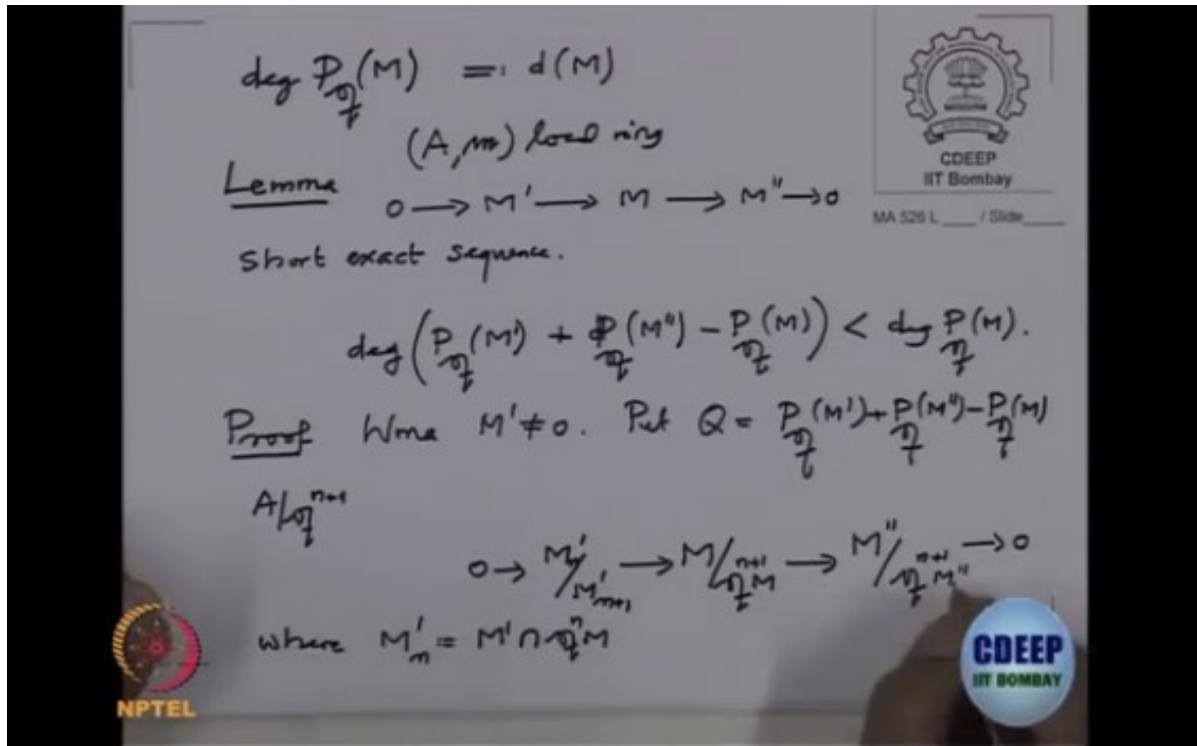 deg P_𝔮(M) =: d(M)
(A, m) local ring
Lemma 0 → M' → M → M" → 0
Short exact sequence.
deg (P_𝔮(M') + P_𝔮(M") − P_𝔮(M)) < deg P_𝔮(M).
Proof Wma M' ≠ 0. Put Q = P_𝔮(M') + P_𝔮(M") − P_𝔮(M)
A/𝔮^{n+1}
0 → M'/M'_{n+1} → M/𝔮^{n+1}M → M"/𝔮^{n+1}M" → 0
where M'_n = M' ∩ 𝔮^n M
CDEEP
IIT Bombay
MA 526 L ____ / Slide ____
NPTEL
CDEEP
IIT BOMBAY